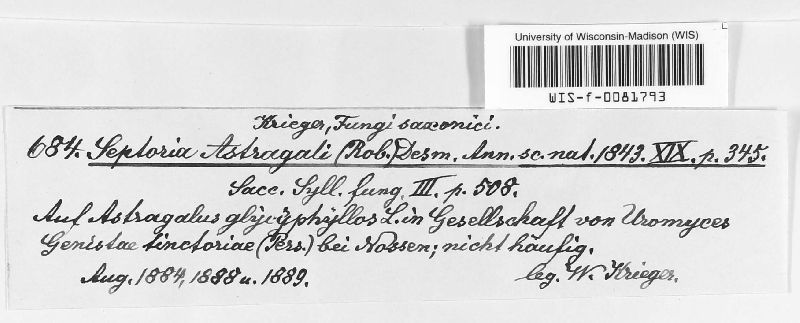 University of Wisconsin-Madison (WIS)
WIS-f-0081793
Krieger, Fungi saxonici.
684. Septoria Astragali (Rob.) Desm. Ann. sc. nat. 1843. XIX. p. 345.
Sacc. Syll. fung. III. p. 508.
Auf Astragalus glycyphyllos L. in Gesellschaft von Uromyces
Genistae tinctoriae (Pers.) bei Nossen; nicht häufig.
Aug. 1884, 1888 u. 1889. leg. W. Krieger.